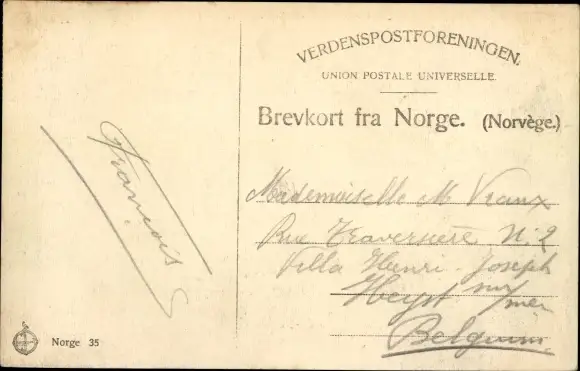 VERDENSPOSTFORENINGEN.
UNION POSTALE UNIVERSELLE.
Brevkort fra Norge. (Norvège.)
François
Mademoiselle M Vraux
Rue Traversière N: 2
Villa Henri-Joseph
Heyst sur mer
Belgium
Norge 35